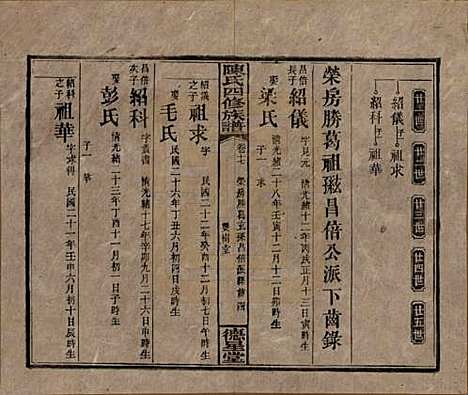 廿一世 廿二世 廿三世 廿四世 廿五世
紹儀 祖求
紹科 祖華
榮房勝葛祖璈昌倍公派下齒錄
昌倍長子 紹儀 字見元 清光緒十二年丙戌正月十三日寅時生
娶 梁氏 清光緒二十八年壬寅十二月十二日卯時生
子一 求
紹儀之子 祖求 字 民國二十二年癸酉十二月初七日午時生
陳氏四修族譜
卷七
雙桐堂
德星堂
娶 毛氏 民國二十六年丁丑六月初四日戌時生
昌倍次子 紹科 字叢書 清光緒十七年辛卯九月二十六日寅時生
娶 彭氏 清光緒二十三年丁酉十一月初一日子時生
子一 華
紹科之子 祖華 字求科 民國二十一年壬申六月初八日未時生